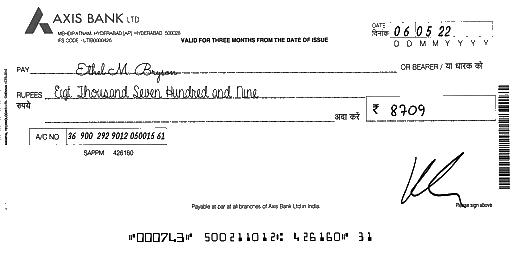 AXIS BANK LTD
MEHDIPATNAM, HYDERABAD [AP] HYDERABAD 500028
IFS CODE - UTIB0000426
VALID FOR THREE MONTHS FROM THE DATE OF ISSUE
DATE
दिनांक 06 05 22
D D M M Y Y Y Y
PAY Ethel M Bryson OR BEARER / या धारक को
RUPEES Eigt Thousand Seven Hundred and Nine
रुपये
अदा करें ₹ 8709
A/C NO 36 900 292 9012 050015 61
SAPPM 426160
Please sign above
Payable at par at all branches of Axis Bank Ltd in India.
"000743" 500211012: 426160" 31